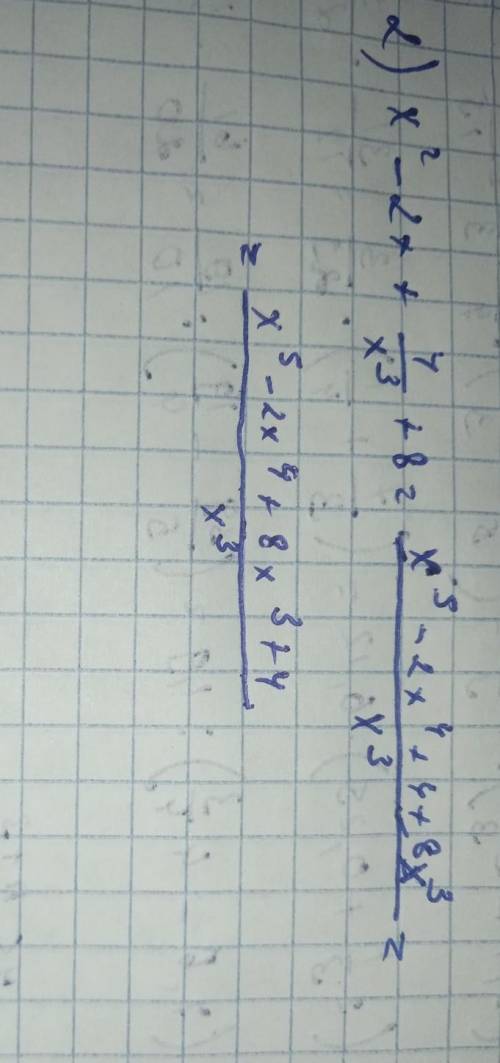 2) x² - 2x + 4/x³ + 8 = (x⁵ - 2x⁴ + 4 + 8x³)/x³ =
= (x⁵ - 2x⁴ + 8x³ + 4)/x³